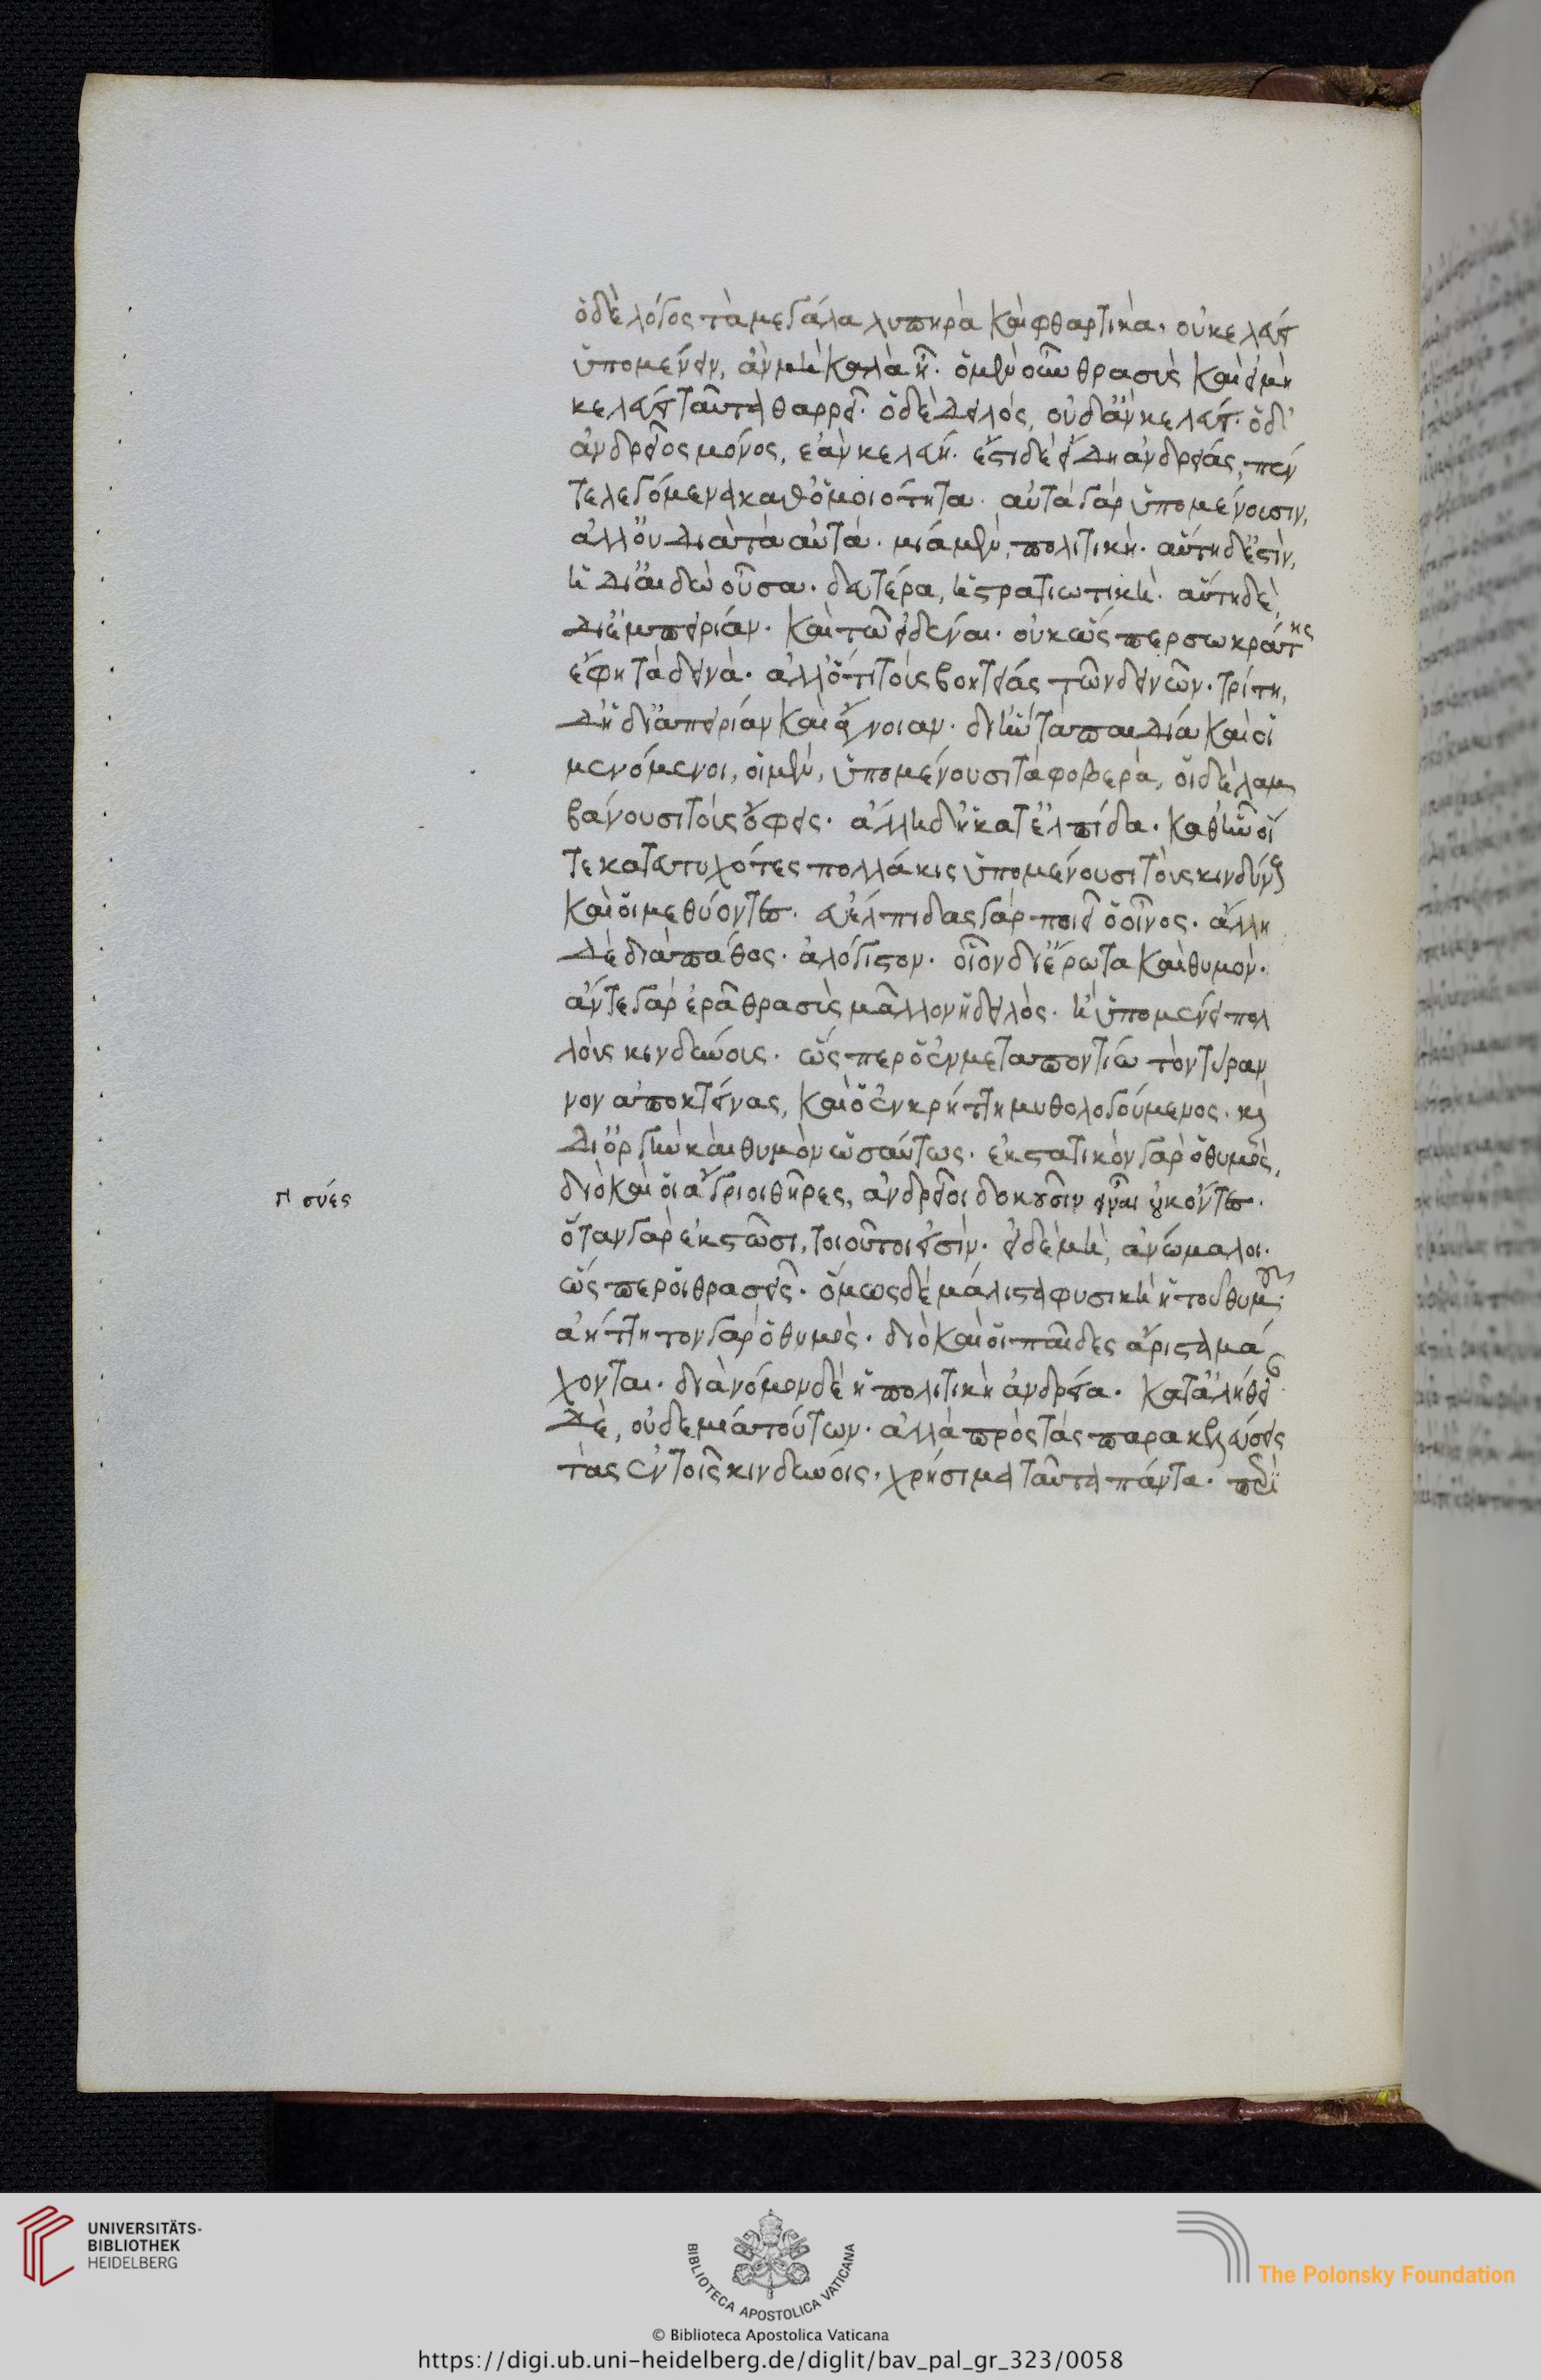 ὁ δὲ λόγος τὰ μεγάλα λυπηρὰ καὶ φθαρτικὰ. οὐ κελεύει
ὑπομένειν, ἂν μὴ καλὰ ᾖ. ὁ μὲν οὖν θρασὺς καὶ εἰ μὴ
κελεύει ταῦτα θαρρεῖ. ὁ δὲ δειλὸς, οὐδ' ἂν κελεύει. ὁ δ'
ἀνδρεῖος μόνος, ἐὰν κελεύη. ἔστι δὲ εἴδη ἀνδρείας, πέν
τε λεγόμενα καθ' ὁμοιότητα. αὐτὰ γὰρ ὑπομένουσιν,
ἀλλ' οὐ διὰ τὰ αὐτά. μιὰ μὲν, πολιτικὴ. αὕτη δ' ἐστὶν,
ἡ δι' αἰδῶ οὖσα. δευτέρα, ἡ στρατιωτικὴ. αὕτη δὲ,
δι' ἐμπειρίαν. καὶ τῶ εἰδέναι. οὐκ ὥσπερ σωκράτης
ἔφη τὰ δεινὰ. ἀλλ' ὅτι τοὺς βοηθείας τῶν δεινῶν. τρίτη,
δ' ἡ δι' ἀπειρίαν καὶ ἄγνοιαν. δι' ἣν τὰ παιδία καὶ οἱ
μενόμενοι, οἱ μὲν, ὑπομένουσι τὰ φοβερὰ, οἱ δὲ λαμ
βάνουσι τοὺς ὄφεις. ἄλλη δ' ἡ κατ' ἐλπίδα. καθ' ἣν οἵ
τε κατευτυχότες πολλάκις ὑπομένουσι τοὺς κινδύνους
καὶ οἱ μεθύοντες. εὐέλπιδας γὰρ ποιεῖ ὁ οἶνος. ἄλλη
δὲ διὰ πάθος. ἀλόγιστον. οἷον δι' ἔρωτα καὶ θυμὸν.
ἄν τε γὰρ ἐρᾶ θρασὺς μᾶλλον ἢ δειλὸς. ἢ ὑπομένει πολ
λοὺς κινδύνους. ὥσπερ ὁ ἐν μεταποντίω τὸν τύραν
νον ἀποκτείνας, καὶ ὁ ἐν κρήτη μυθολογούμενος. καὶ
δι' ὀργὴν καὶ θυμὸν ὡσαύτως. ἐκστατικὸν γὰρ ὁ θυμὸς,
διὸ καὶ οἱ ἄγριοι θῆρες, ἀνδρεῖοι δοκοῦσιν εἶναι οὐκ ὄντες.
ὅταν γὰρ ἐκστῶσι, τοιοῦτοι εἰσὶν. εἰ δὲ μὴ, ἀνώμαλοι.
ὥσπερ οἱ θρασεῖς. ὅμως δὲ μάλιστα φυσικὴ ἡ τοῦ θυμοῦ.
ἀήττητον γὰρ ὁ θυμὸς. διὸ καὶ οἱ παῖδες ἄριστα μά
χονται. διὰ νόμον δὲ ἡ πολιτικὴ ἀνδρεία. κατ' ἀλήθειαν
δὲ, οὐδεμία τούτων. ἀλλὰ πρὸς τὰς παρακελεύσεις
τὰς ἐν τοῖς κινδύνοις. χρήσιμα ταῦτα πάντα. περὶ
σύες
UNIVERSITÄTS-
BIBLIOTHEK
HEIDELBERG
BIBLIOTECA APOSTOLICA VATICANA
The Polonsky Foundation
© Biblioteca Apostolica Vaticana
https://digi.ub.uni-heidelberg.de/diglit/bav_pal_gr_323/0058